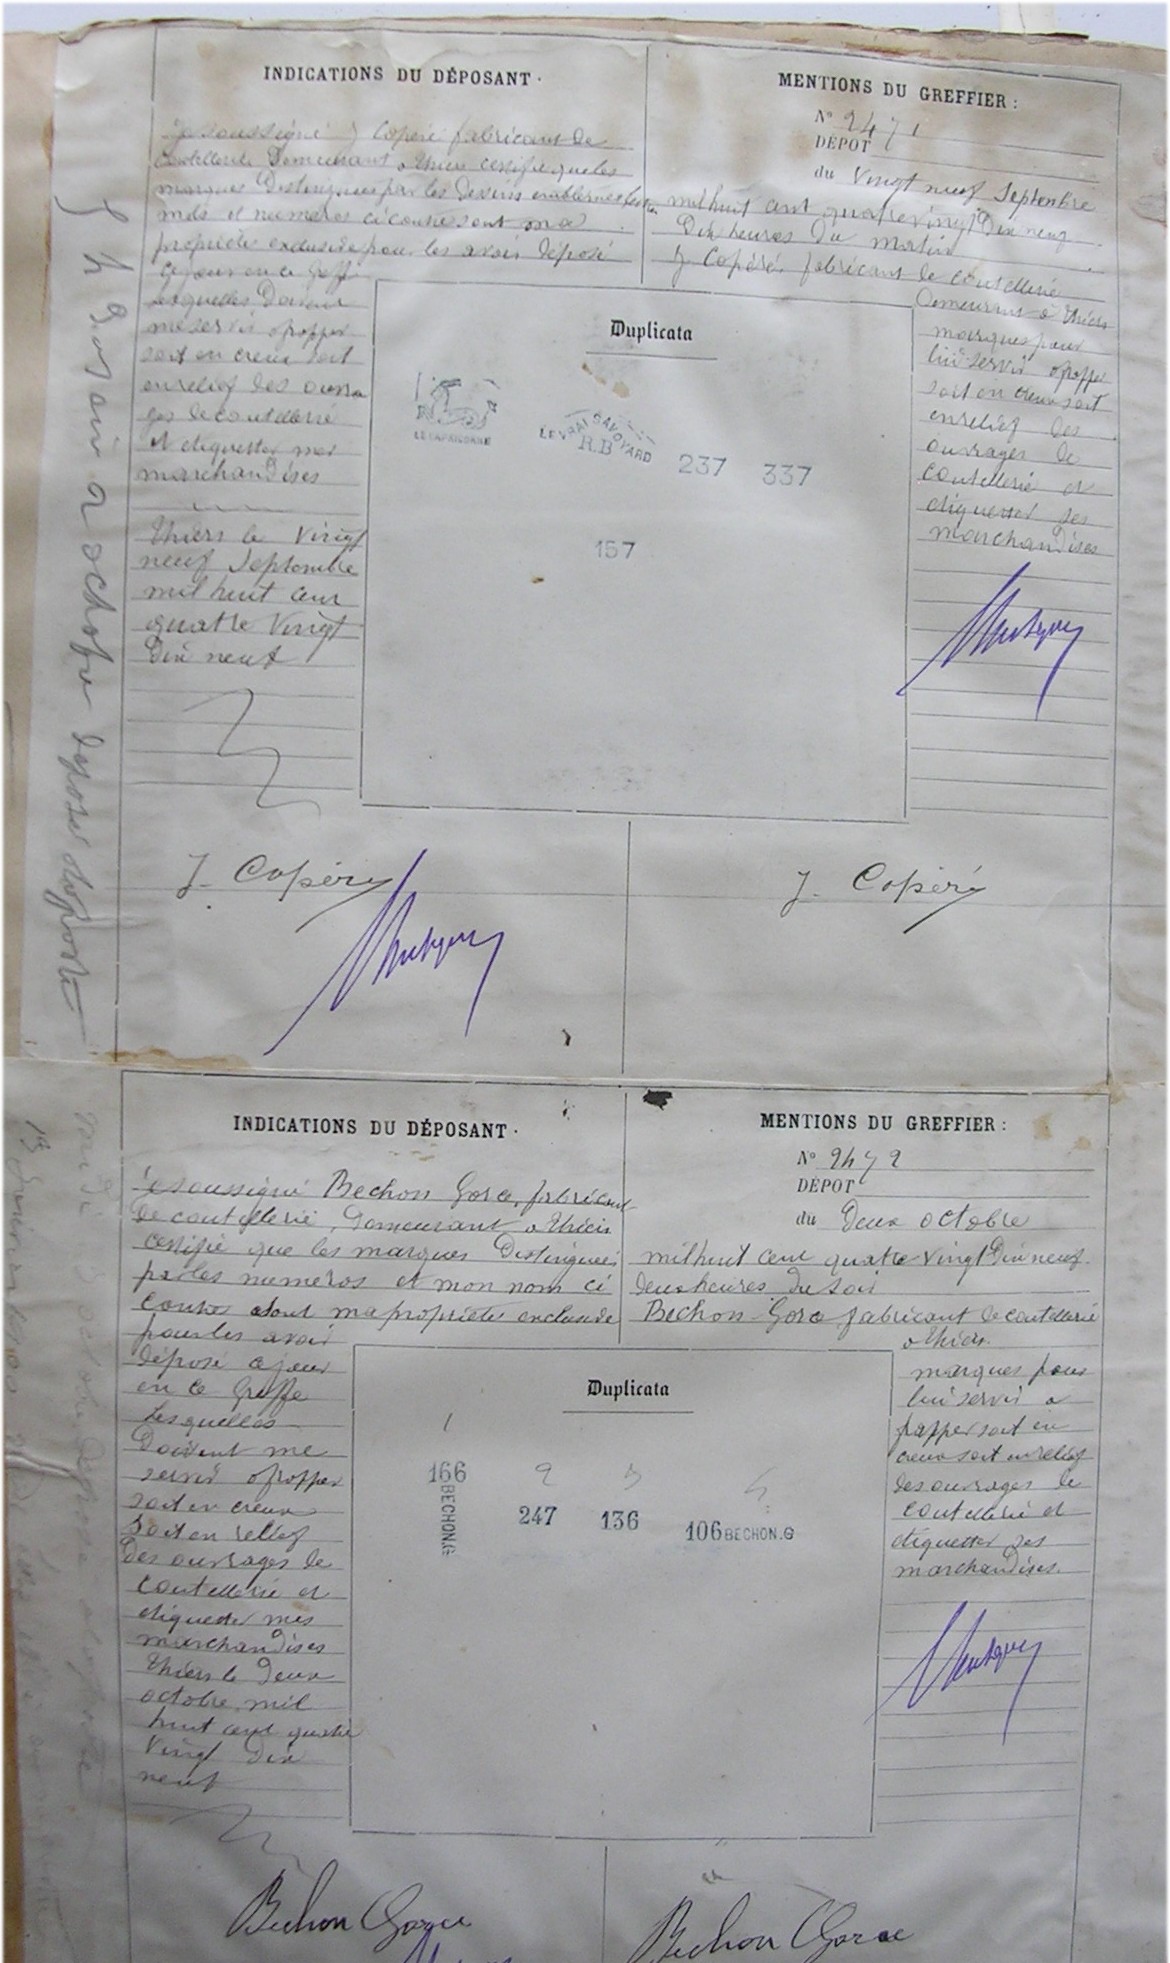 INDICATIONS DU DÉPOSANT.
Je soussigné J Copéré fabricant de
coutellerie Demeurant a Thiers certifie que les
marques Distinguées par les Devises emblemes
mots et numeros ci contre sont ma
propriétée exclusive pour les avoir déposé
ce jour en ce Greffe
lesquelles Doivent
me servir a frapper
soit en creux soit
en relief des ouvra
ges de coutellerie
et etiquetter mes
marchandises
Thiers le Vingt
neuf Septembre
mil huit cent
quatre Vingt
Dix neuf
J. Copéré
MENTIONS DU GREFFIER :
N° 2471
DÉPOT
du Vingt neuf Septembre
mil huit cent quatre vingt Dix neuf
Dix heures Du matin
J Copéré fabricant de coutellerie
Demeurant a Thiers
marques pour
lui servir a frapper
soit en creux soit
en relief des
ouvrages de
coutellerie et
etiquetter ses
marchandises
J. Copéré
Duplicata
LE VRAI SAVOYARD
R.B
237 337
157
INDICATIONS DU DÉPOSANT.
Je soussigné Bechon Gorce, fabricant
de coutellerie, Demeurant a Thiers
certifie que les marques Distinguées
par les numeros et mon nom ci
contre sont ma propriétée exclusive
pour les avoir
déposé ce jour
en ce Greffe
Lesquelles
Doivent me
servir a frapper
soit en creux
soit en relief
Des ouvrages de
coutellerie et
etiquetter mes
marchandises
Thiers le Deux
octobre mil
huit cent quatre
Vingt Dix
neuf
Bechon Gorce
MENTIONS DU GREFFIER :
N° 2472
DÉPOT
du Deux octobre
mil huit cent quatre vingt Dix neuf
deux heures Du soir
Bechon-Gorce fabricant de coutellerie
a Thiers
marques pour
lui servir a
frapper soit en
creux soit en relief
des ouvrages de
coutellerie et
etiquetter ses
marchandises.
Bechon Gorce
Duplicata
1
166
BECHON.G
2
247
3
136
4
106 BECHON.G